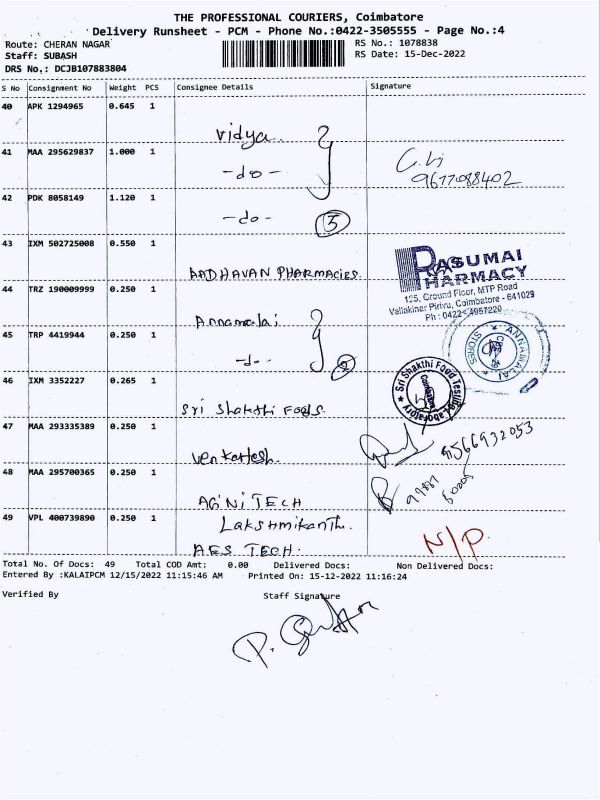 THE PROFESSIONAL COURIERS, Coimbatore
Delivery Runsheet - PCM - Phone No.:0422-3505555 - Page No.:4
Route: CHERAN NAGAR RS No.: 1078838
Staff: SUBASH RS Date: 15-Dec-2022
DRS No.: DCJB107883804
S No Consignment No Weight PCS Consignee Details Signature
40 APK 1294965 0.645 1
Vidya
41 MAA 295629837 1.000 1
-do-
9677088402
42 PDK 8058149 1.120 1
-do- 3
43 IXM 502725008 0.550 1
AADHAVAN PHARMACIES.
PASUMAI
PHARMACY
125, Ground Floor, MTP Road
Vallakinar Pirivu, Coimbatore - 641029
Ph : 0422-4957220
44 TRZ 190009999 0.250 1
Annamalai
45 TRP 4419944 0.250 1
-do- 2
ANNAMALAI STORES
46 IXM 3352227 0.265 1
Sri Shakthi Foods.
Sri Shakthi Food Testing Laboratory
Coimbatore
47 MAA 293335389 0.250 1
Venkatesh.
9566932053
48 MAA 295700365 0.250 1
AGiNi TECH
49 VPL 400739890 0.250 1
Lakshmikanth.
AES TECH.
N/P.
Total No. Of Docs: 49 Total COD Amt: 0.00 Delivered Docs: Non Delivered Docs:
Entered By :KALAIPCM 12/15/2022 11:15:46 AM Printed On: 15-12-2022 11:16:24
Verified By Staff Signature